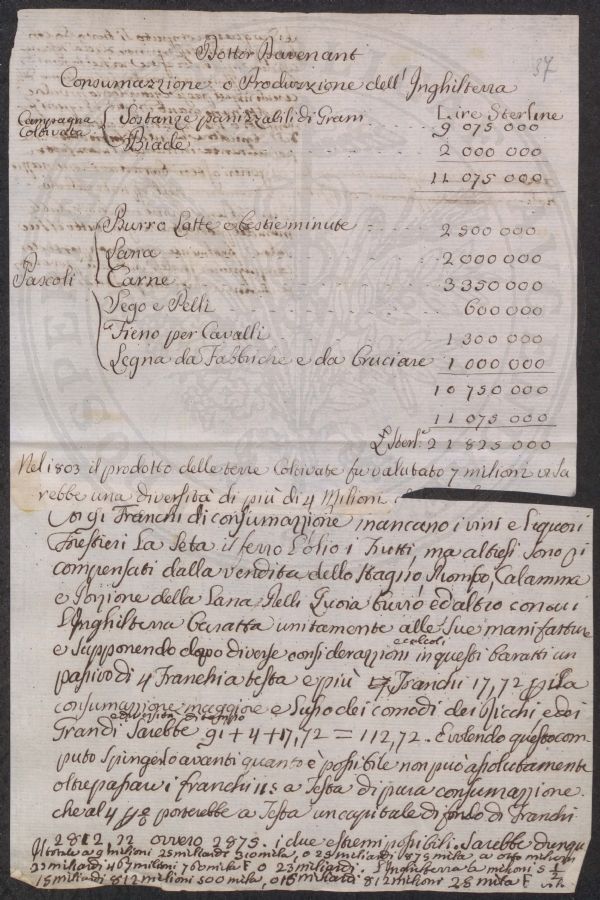 37
Dottor Davenant
Consumazzione o Produzzione dell'Inghilterra
Lire Sterline
Campagna Coltivata { Sostanze panizzabili di Grani 9 075 000
Biade 2 000 000
11 075 000
Pascoli { Burro Latte e bestie minute 2 500 000
Lana 2 000 000
Carne 3 350 000
Sego e Pelli 600 000
Fieno per Cavalli 1 300 000
Legna da Fabbriche e da bruciare 1 000 000
10 750 000
11 075 000
Sterl. 21 825 000
Nel 1803 il prodotto delle terre Coltivate fu valutato 7 milioni vi sa
rebbe una diversità di più di 4 Milioni
91 Franchi di consumazzione mancano i vini e liquori
Forestieri La Seta il ferro l'olio i Frutti, ma altresi sono
compensati dalla vendita dello stagno, Piombo, Calamina
e Porzione della Lana, Pelli Cuoia burro ed altro con cui
l'Inghilterra baratta unitamente alle sue manifatture
e supponendo dopo diverse considerazzioni e calcoli in questi baratti un
passivo di 4 Franchi a testa e più Franchi 17,72 la
consumazzione maggiore e lusso dei comodi dei Ricchi e dei
Grandi sarebbe 91 + 4 + 17,72 = 112,72. E volendo questo com
puto spingerlo avanti quanto è possibile non può assolutamente
oltrepassare i franchi 115 a Testa di pura consumazzione
che al 4 porterebbe a Testa un capitale di fondo di Franchi
2812,22 ovvero 2875. i due estremi possibili. Sarebbe dunque
a 9 milioni 25 miliardi 310 mila, o 25 miliardi 875 mila, a otto milioni
22 miliardi 467 milioni 760 mila F o 23 miliardi. L'Inghilterra a milioni 5 1/2
15 miliardi 812 milioni 500 mila, o 15 miliardi 812 milioni 28 mila F